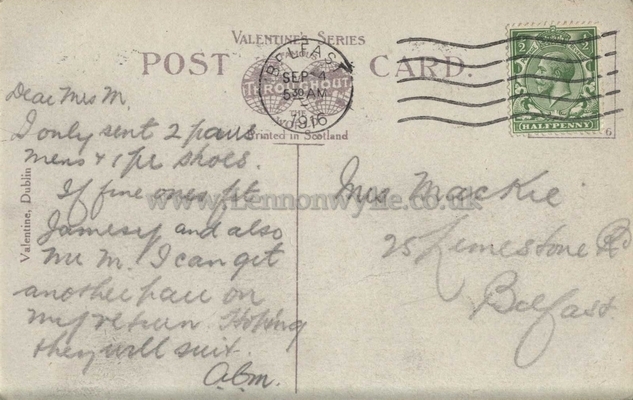 VALENTINE'S SERIES
POST CARD.
FAMOUS
THROUGHOUT
THE
WORLD
Printed in Scotland
BELFAST
SEP 4
5 30 AM
1916
HALFPENNY
6
Valentine, Dublin
Dear Mrs M.
I only sent 2 pairs
mens & 1 pr shoes.
If fine ones fit
Jamesy and also
Mr M. I can get
another pair on
my return. Hoping
they will suit.
A.B.M.
Mrs Mackie
25 Limestone Rd
Belfast.
www.Lennonwylie.co.uk